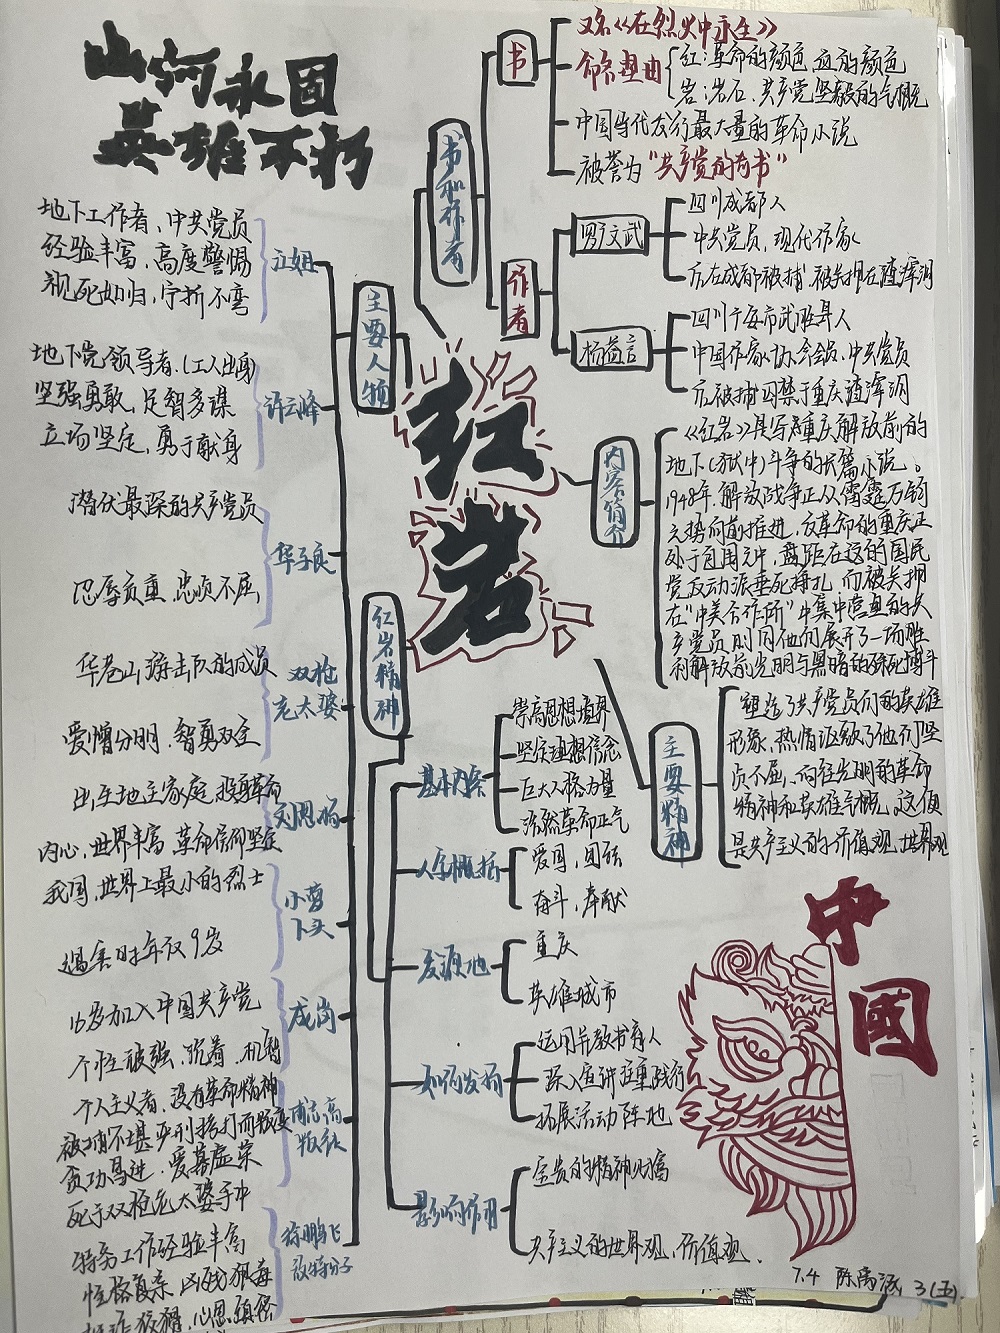 山河永固
英雄不朽
书和作者
书
又名《在烈火中永生》
命名理由
红:革命的颜色 血的颜色
岩:岩石、共产党坚毅的气概
中国当代发行最大量的革命小说
被誉为"共产党的奇书"
作者
罗广文武
四川成都人
中共党员,现代作家
后在成都被捕,被关押在渣滓洞
杨益言
四川广安市武胜县人
中国作家协会会员,中共党员
后被捕囚禁于重庆渣滓洞
红岩
内容简介
《红岩》是写重庆解放前的
地下(狱中)斗争的长篇小说。
1948年,解放战争正以雷霆万钧
之势向前推进,反革命的重庆正
处于包围之中,盘距在这的国民
党反动派垂死挣扎,而被关押
在"中美合作所"中集中营里的共
产党员则同他们展开了一场胜
利解放前光明与黑暗的殊死搏斗
主要精神
塑造了共产党员们的英雄
形象,热情讴歌了他们坚
贞不屈、向往光明的革命
精神和英雄气概。这便
是共产主义的价值观、世界观
主要人物
江姐
地下工作者、中共党员
经验丰富,高度警惕
视死如归,宁折不弯
许云峰
地下党领导者,(工人出身)
坚强勇敢,足智多谋
立场坚定,勇于献身
华子良
潜伏最深的共产党员
忍辱负重,忠贞不屈
双枪
老太婆
华蓥山游击队的成员
爱憎分明,智勇双全
刘思扬
出生地主家庭,投身革命
内心,世界丰富 革命信仰坚定
小萝
卜头
我国,世界上最小的烈士
遇害时年仅9岁
成岗
16岁加入中国共产党
个性被强、沉着、机智
甫志高
叛徒
个人主义者,没有革命精神
被捕不堪严刑拷打而叛变
贪功冒进,爱慕虚荣
死于双枪老太婆手中
徐鹏飞
敌特分子
特务工作经验丰富
性格复杂 凶残狠毒
狡猾,心思缜密
红岩精神
基本内条
崇高思想境界
坚定理想信念
巨大人格力量
浩然革命正气
八字概括
爱国,团结
奋斗,奉献
发源地
重庆
英雄城市
如何发扬
运用于教书育人
深入宣讲注重践行
拓展活动阵地
影响作用
宝贵的精神财富
共产主义的世界观,价值观.
中
國
7.4 陈禹涵 3(五)